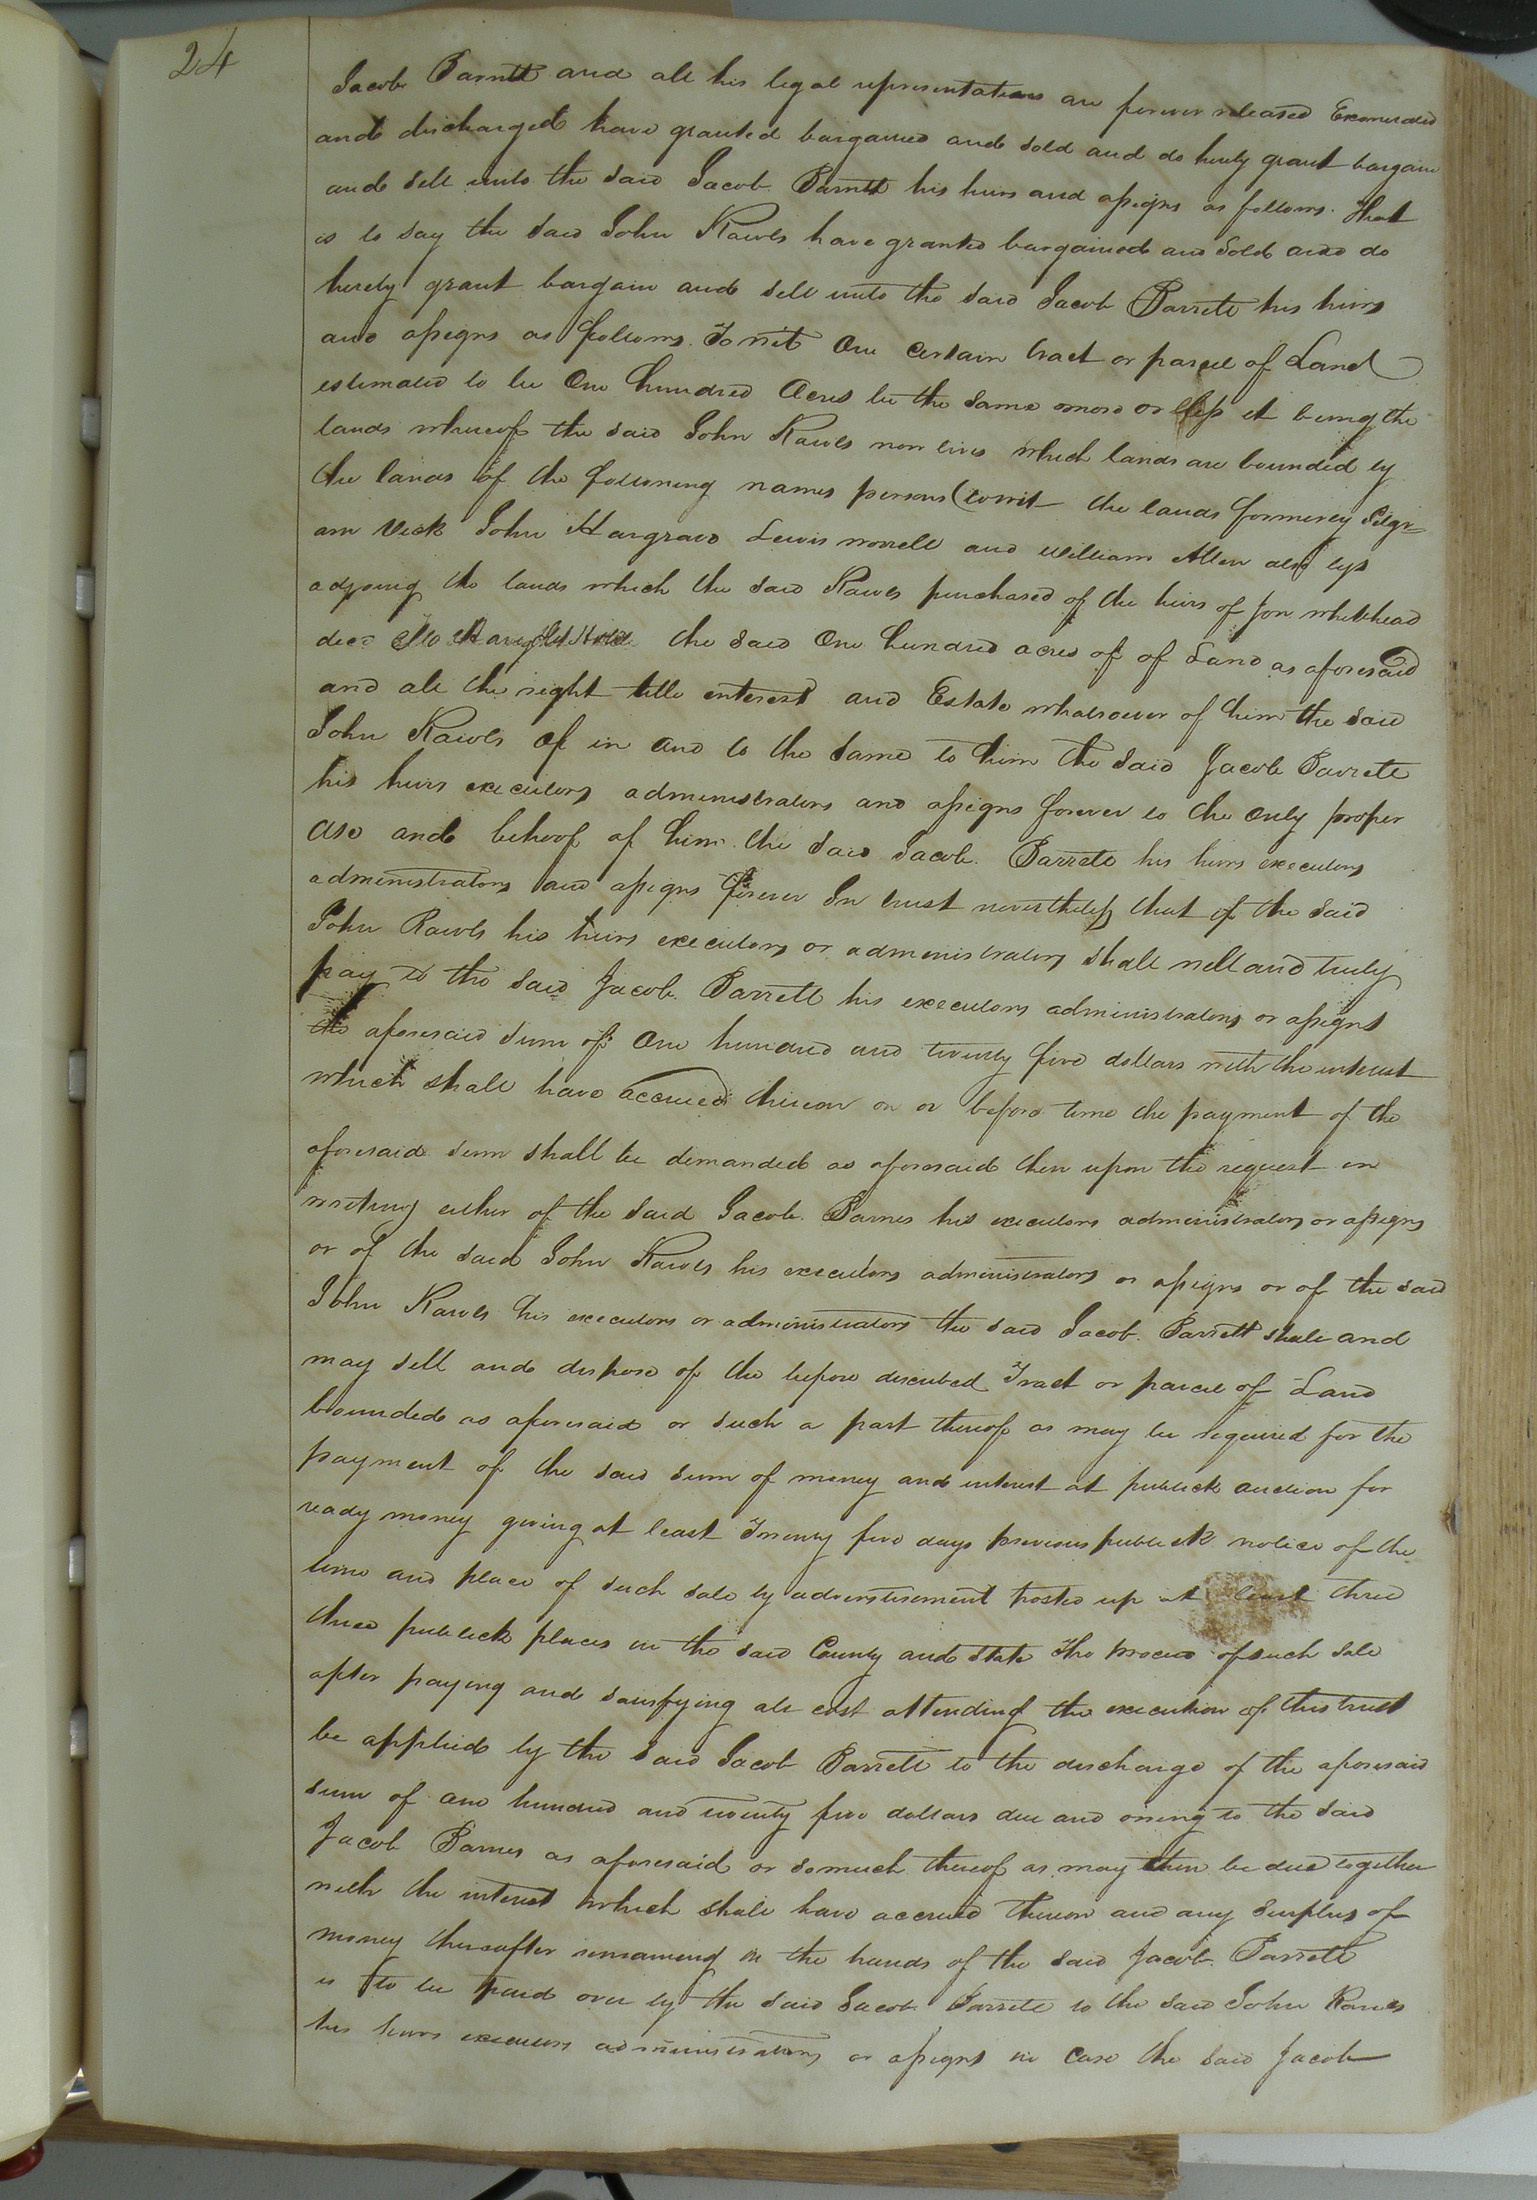 24
Jacob Barrett and all his legal representatives are forever released Exonerated
and discharged have granted bargained and sold and do hereby grant bargain
and sell unto the said Jacob Barrett his heirs and assigns as follows. That
is to say the said John Rawls have granted bargained and Sold and do
hereby grant bargain and sell unto the said Jacob Barrett his heirs
and assigns as follows. To wit One certain tract or parcel of Land
estimated to be One hundred Acres be the same more or less it being the
lands whereof the said John Rawls now lives which lands are bounded by
the lands of the following names persons (to wit the lands formerly Pilgr=
am Vick John Hargrave Lewis Worrell and William Allen also
adjoing the lands which the said Rawls purchased of the heirs of Jon Whitehead
decd To Have & to Hold the said One hundred acres of of Land as aforesaid
and all the right title interest and Estate whatsoever of him the said
John Rawls of in and to the same to him the said Jacob Barrett
his heirs executors administrators and assigns forever to the only proper
use and behoof of him the said Jacob Barrett his heirs executors
administrators and assigns forever In trust nevertheless that if the said
John Rawls his heirs executors or administrators shall well and truly
pay to the said Jacob Barrett his executors administrators or assigns
the aforesaid sum of One hundred and twenty five dollars with the interest
which shall have accrued thereon on or before time the payment of the
aforesaid sum shall be demanded as aforesaid then upon the request in
writing either of the said Jacob Barnes his executors administrators or assigns
or of the said John Rawls his executors administrators or assigns or of the said
John Rawls his executors or administrators the said Jacob Barrett shall and
may sell and dispose of the before described Tract or parcel of Land
bounded as aforesaid or such a part thereof as may be required for the
payment of the said sum of money and interest at publick auction for
ready money giving at least Twenty five days previous publick notice of the
time and place of such sale by adverstisement posted up at least three
three publick places in the said County and State The proceed of such sale
after paying and satisfying all cost attending the execution of this trust
be applied by the said Jacob Barrett to the discharge of the aforesaid
sum of one hundred and twenty five dollars due and owing to the said
Jacob Barnes as aforesaid or so much thereof as may then be due together
with the interest which shall have accrued thereon and any surplus of
money thereafter remaining in the hands of the said Jacob Barrett
is to be paid over by the said Jacob Barrett to the said John Rawls
his heirs executors administrators or assigns in case the said Jacob